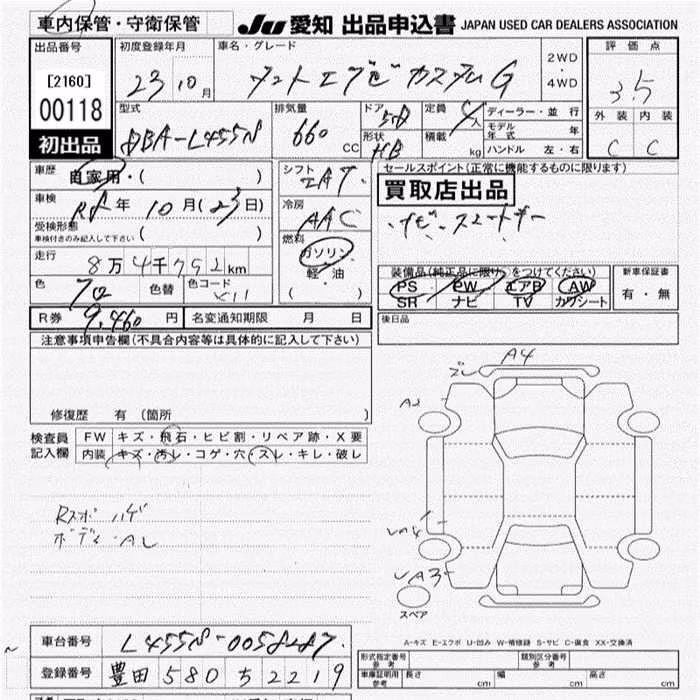 車内保管・守衛保管
JU 愛知 出品申込書 JAPAN USED CAR DEALERS ASSOCIATION
出品番号
[2160]
00118
初出品
初度登録年月
23 10月
車名・グレード
カスタムG
2WD
・
4WD
評価点
3.5
外装 内装
C C
型式
DBA-L455N
排気量
660 cc
ドア
5D
形状
HB
定員
4人
積載
kg
ディーラー・並行
モデル年式 年
ハンドル 左・右
車歴
自家用・( )
車検
R8年 10月(23日)
受検形態
車検付きのみ記入して下さい ( )
走行
8万4千792km
色
色替
色コード
R券 9,460円
名変通知期限 月 日
シフト
IAT
冷房
AAC
燃料
ガソリン
軽油
( )
セールスポイント(正常に機能するものに限ります)
買取店出品
ナビ・スマートキー
装備品(純正品に限り○をつけてください)
PS PW エアB AW
SR ナビ TV カワシート
新車保証書
有・無
後日品
注意事項申告欄(不具合内容等は具体的に記入して下さい)
修復歴 有 (箇所 )
検査員記入欄
FW キズ・飛石・ヒビ割・リペア跡・X要
内装 キズ・汚レ・コゲ・穴・スレ・キレ・破レ
Rスポ ハゲ
ボディ・AL
A4
ズレ
A2
A3
スペア
A-キズ E-エクボ U-凹み W-補修跡 S-サビ C-腐食 XX-交換済
車台番号
登録番号
豊田 580 ち 2219
形式指定番号
参考
類別区分番号
参考
車庫証明用
参考
長さ cm
幅 cm
高さ cm